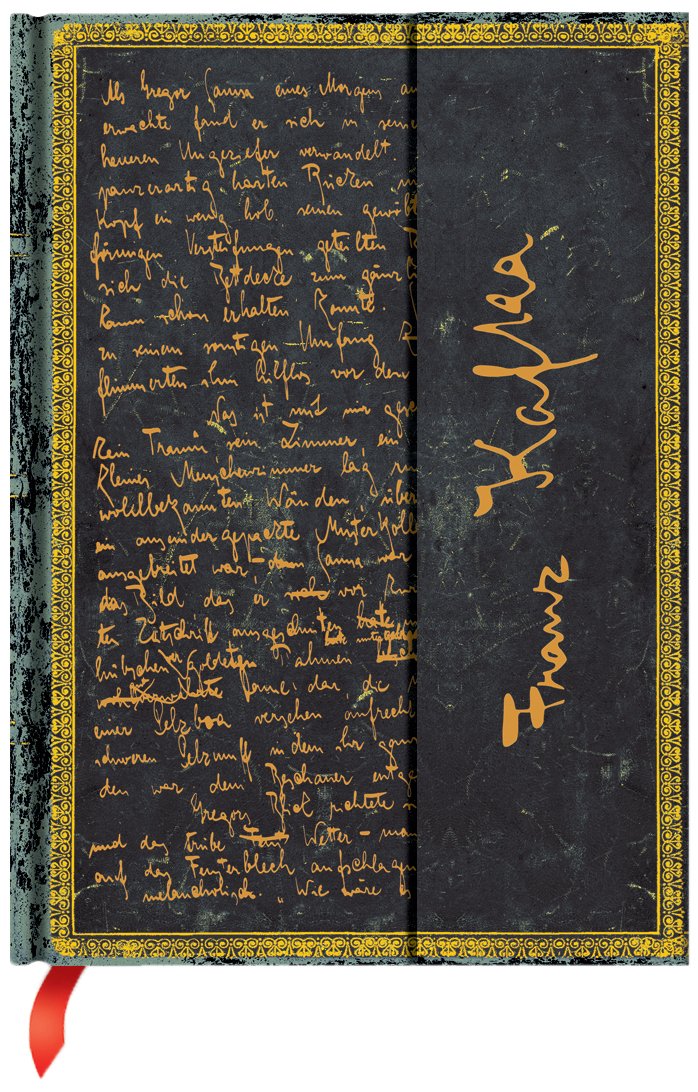 Als Gregor Samsa eines Morgens au
erwachte fand er sich in seine
heueren Ungeziefer verwandelt.
panzerartig harten Rücken un
Kopf ein wenig hob seinen gewölbt
förmigen Versteifungen geteilten B
sich die Bettdecke zum gänzli
kaum schon erhalten konnte.
zu seinem sonstigen Umfang k
flimmerten ihm hilflos vor den
Was ist mit mir gesc
kein Traum sein Zimmer, ein
kleines Menschenzimmer lag ru
wohlbekannten Wänden, über
ein auseinandergepackte Musterkolle
ausgebreitet war – Samsa war
das Bild das er vor kur
ten Zeitschrift ausgeschnitten hatte
hübschen vergoldeten Rahmen
Dame dar, die
einer Pelzboa versehen aufrecht
schweren Pelzmuff in dem ihr ganz
den war dem Beschauer entge
Gregors Blick richtete s
und das trübe Wetter – man
auf das Fensterblech aufschlagen
melancholisch. „Wie wäre es
Franz Kafka